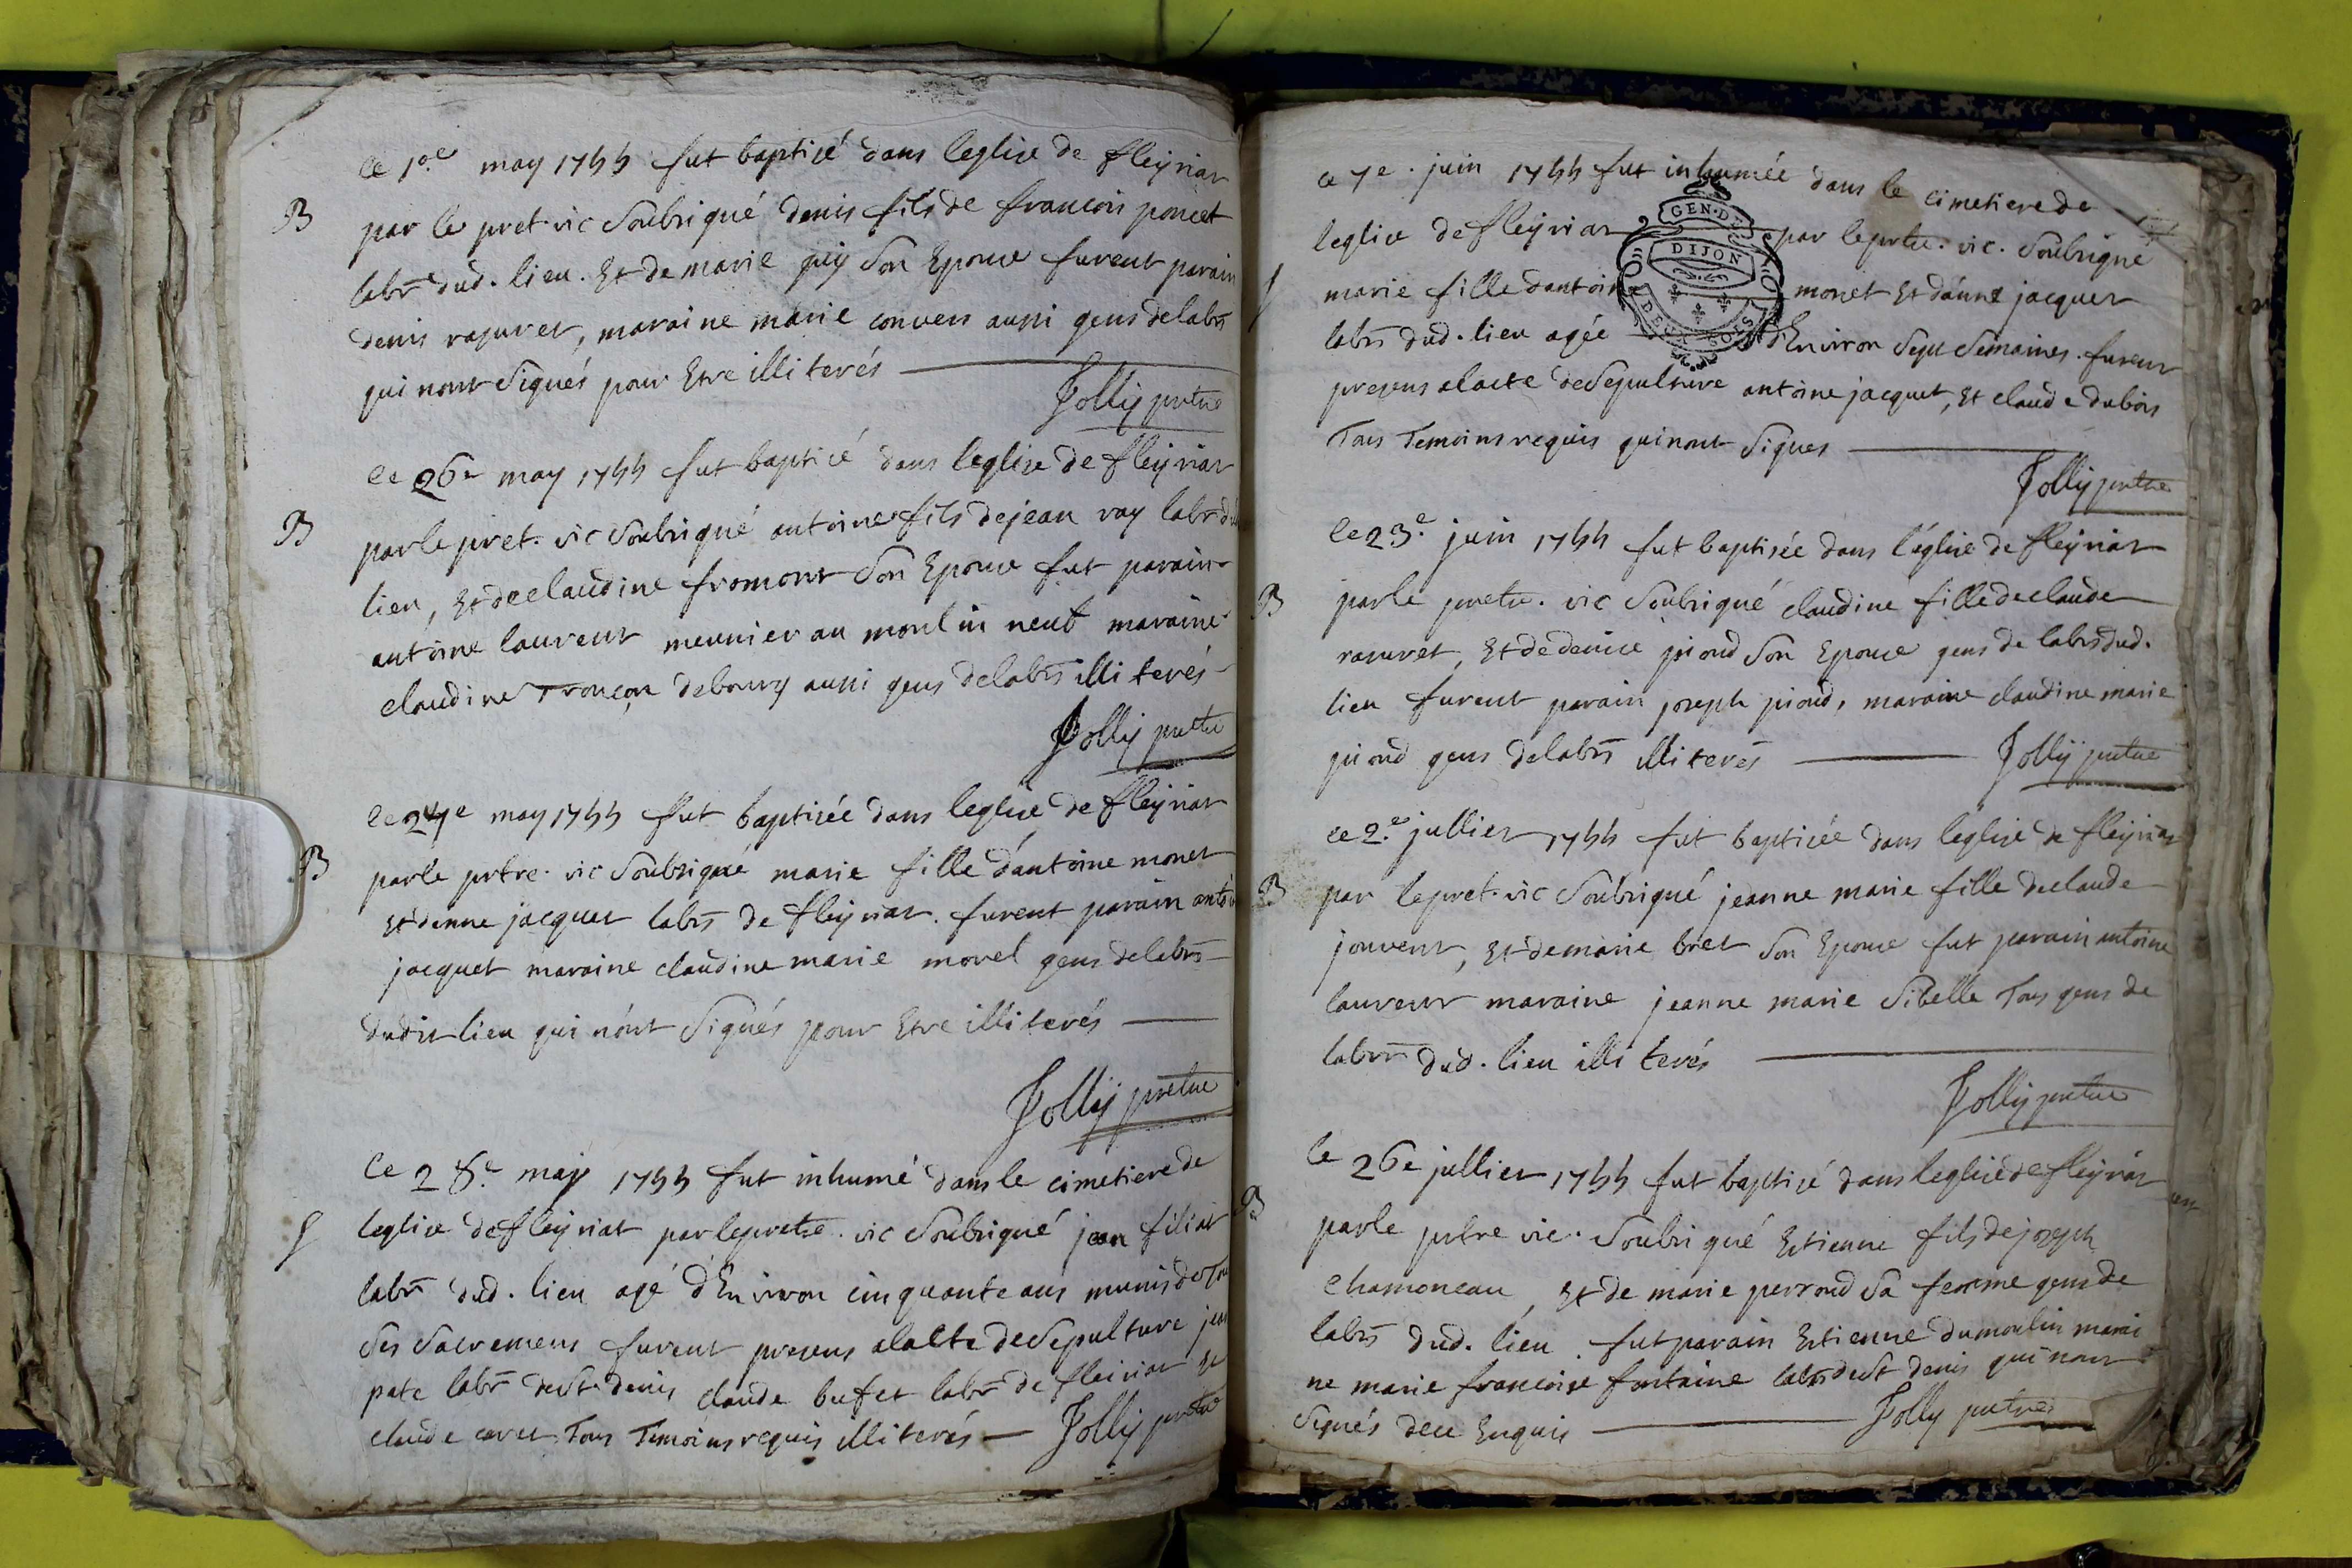 le 1.er may 1755 fut baptisé dans leglise de fleÿriat
B
par le pret. vic soubsigné denis fils de francois poncet
labr dud. lieu. Et de marie guÿ son Epouse furent parain
denis rasuret, maraine marie convers aussi gens de labr
qui nont signés pour Etre illiterés
Jollÿ prêtre
le 26e may 1755 fut baptisé dans leglise de fleÿriat
B
par le pret. vic soubsigné antoine fils de jean ray labr du
lieu, Et de claudine fromont son Epouse fut parain
antoine laurent meunier au moulin neuf maraine
claudine tronçon debourg aussi gens de labr illiterés
Jollÿ prêtre
le 27e may 1755 fut baptisée dans leglise de fleÿriat
B
par le prtre. vic soubsigné marie fille dantoine monet
Et danne jacquet labr de fleÿriat. furent parain anto
jacquet maraine claudine marie morel gens de labr
dudit lieu qui nónt signés pour Etre illiterés
Jollÿ prêtre
Le 28.e maÿ 1755 fut inhumé dans le cimetiere de
S
leglise de fleÿriat par le pretre. vic soubsigné jean filiat
labr dud. lieu agé d'Environ cinquante ans munis de
ses sacremens furent presens alacte de sepulture jean
pate labr de st. denis claude bufet labr de fleiriat Et
claude caret Tous Temoins requis illiterés Jollÿ prêtre
le 7e. juin 1755 fut inhumée dans le cimetiere de
leglise de fleÿriat par le prtre. vic. soubsigné
GEN. DE
DIJON
S
marie fille dantoine monet Et danne jacquet
labr dud. lieu agée d'Environ sept semaines. furent
presens alacte de sepulture antoine jacquet, Et claude dubois
Tous Temoins requis qui nont signes
Jollÿ prêtre
le 23.e juin 1755 fut baptisée dans l'église de fleÿriat
B
par le pretre. vic soubsigné claudine fille de claude
rasuret, Et de denise pioud son Epouse gens de labr dud.
lieu furent parain joseph pioud, maraine claudine marie
pioud gens de labr illiterés Jollÿ prêtre
le 2.e jullier 1755 fut baptisée dans leglise de fleÿriat
B
par le pret. vic soubsigné jeanne marie fille de claude
jouvent, Et de marie bret son Epouse fut parain antoine
laurent maraine jeanne marie sibelle Tous gens de
labr dud. lieu illiterés
Jollÿ prêtre
le 26e jullier 1755 fut baptisé dans leglise de fleÿriat
B
par le prtre vic. soubsigné Estienne fils de joseph
chamoneau, Et de marie perroud sa femme gens de
labr dud. lieu. fut parain Estienne dumoulin marai
ne marie francoise fontaine labr de st denis qui nont
signés de ce Enquis Jolly prêtre